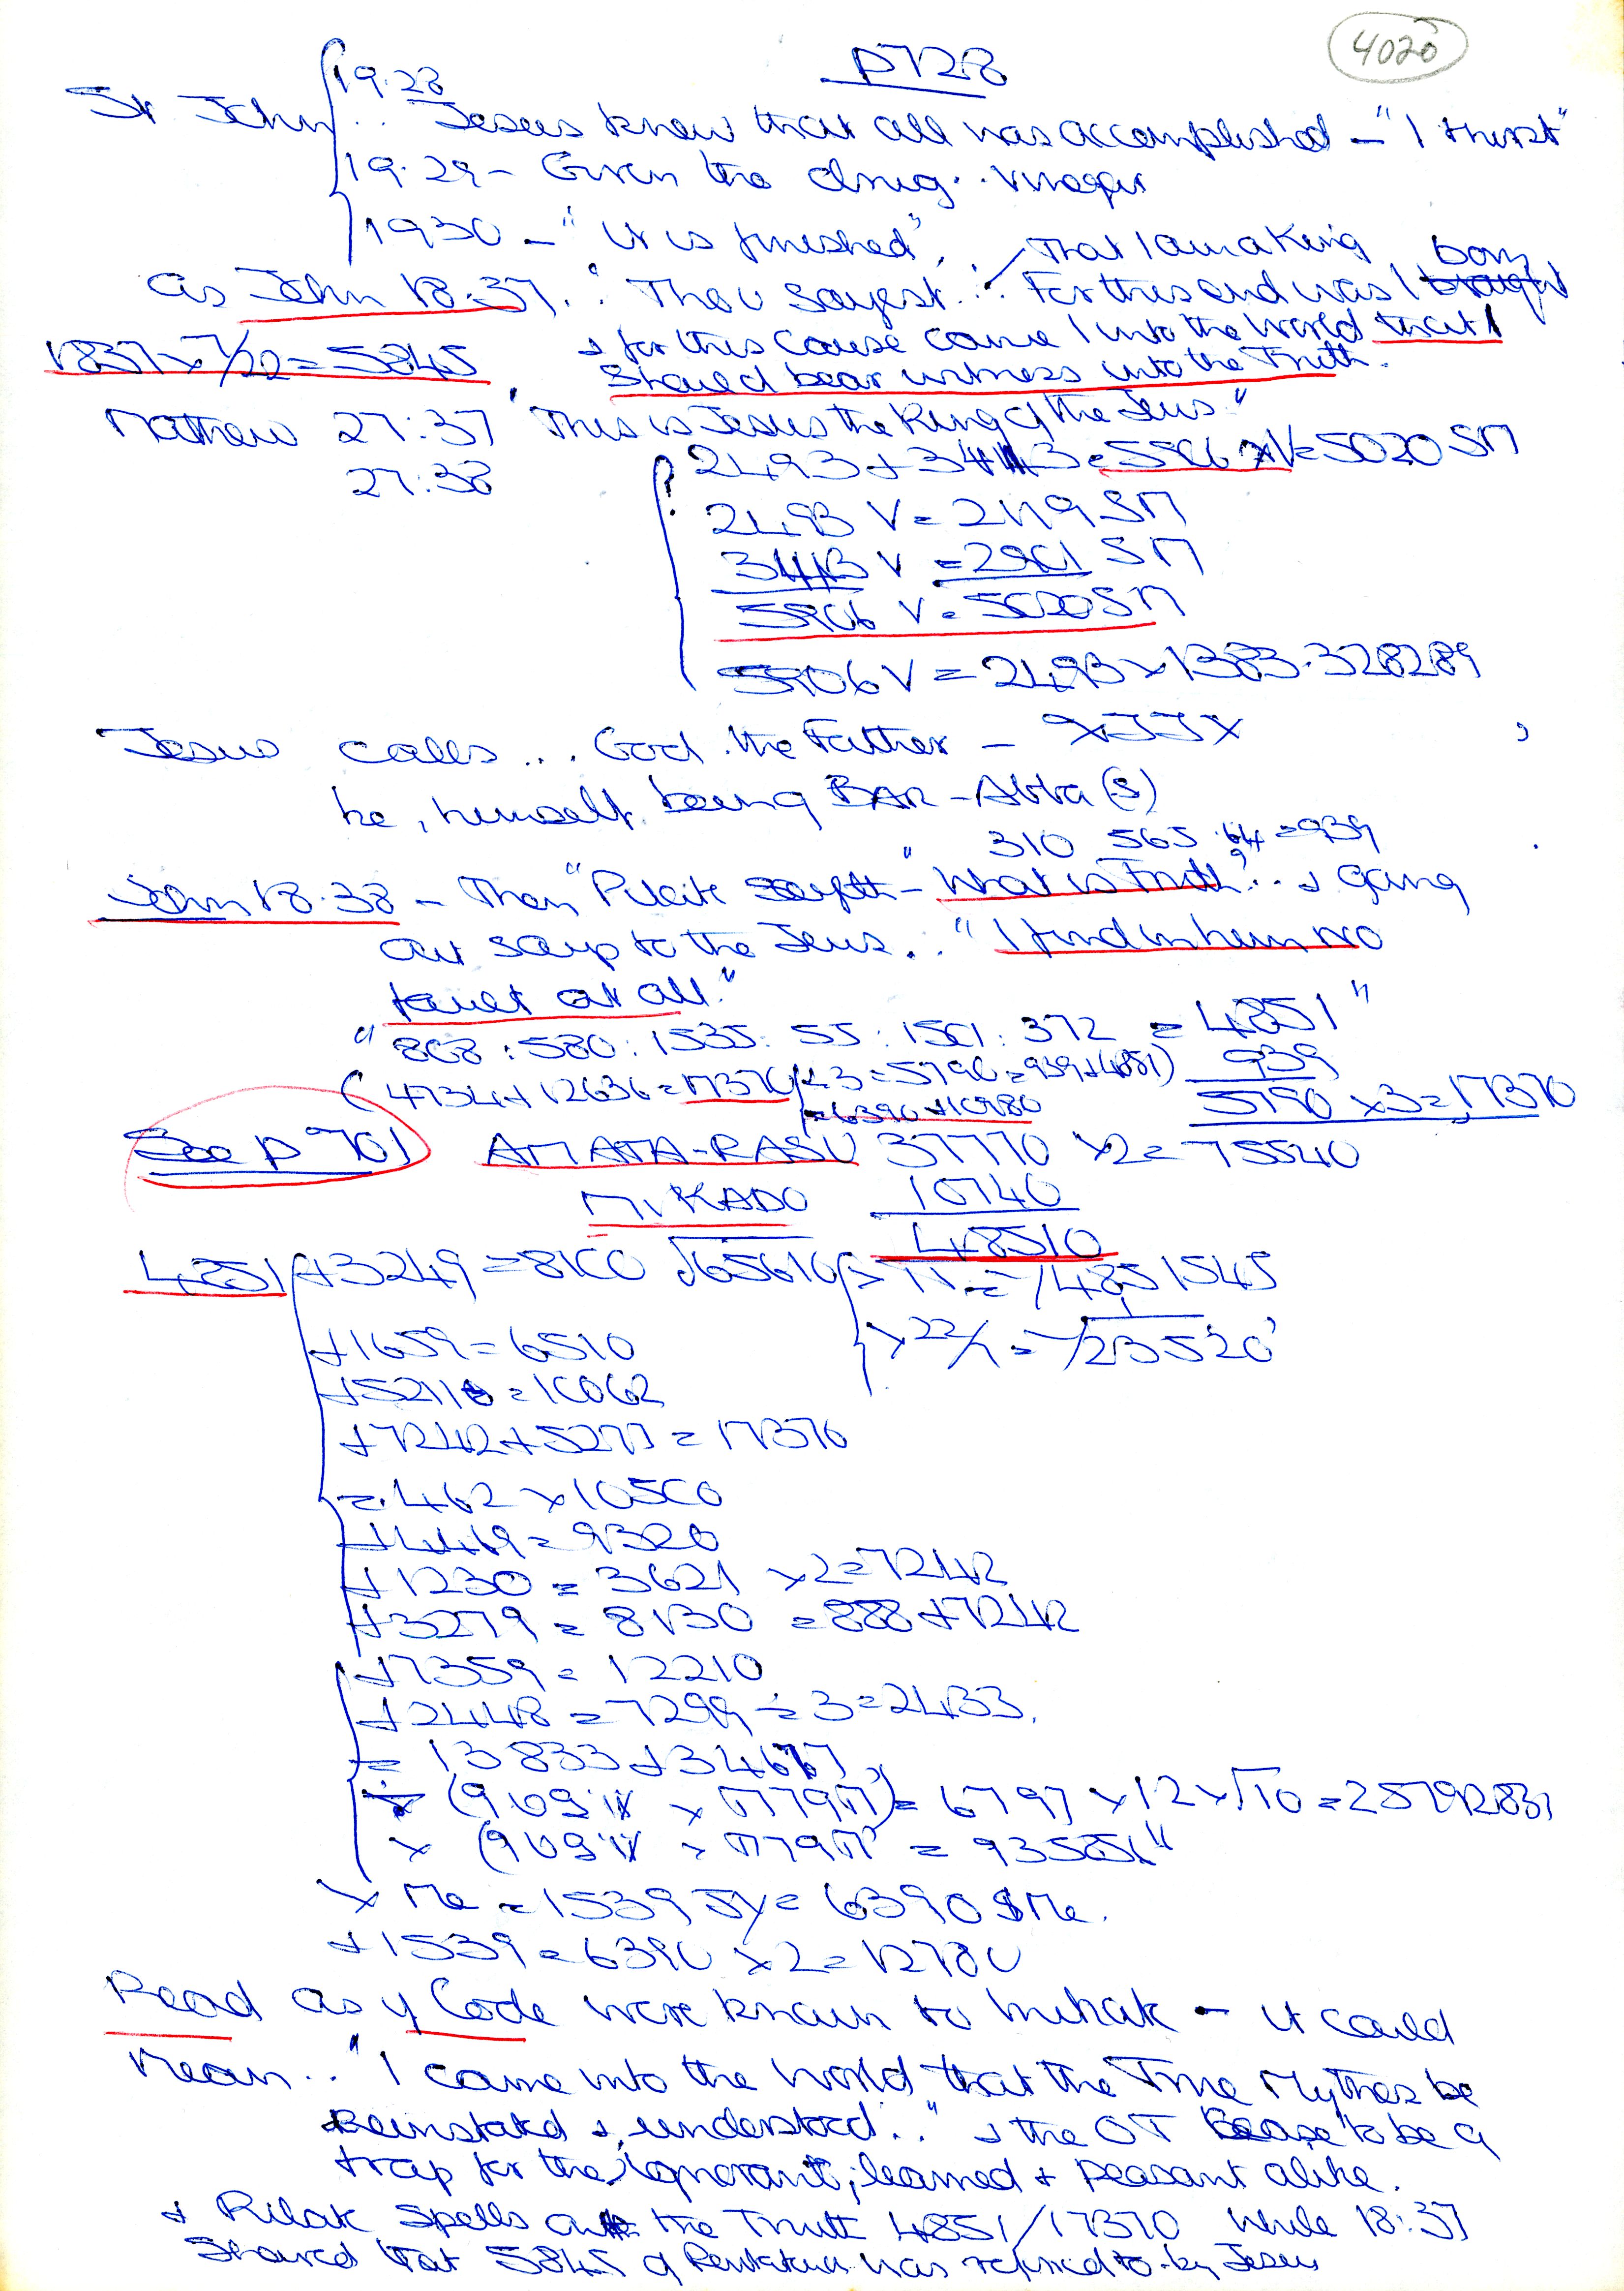 4020
p728
St John 19.28 .. Jesus knew that all was accomplished - "I thirst"
19.29 - Given the drug .. vinegar
1930 - "it is finished"
as John 18.37. : Thou sayest .. that I am a King. For this end was I born
& for this cause came I into the World that I
1837 x 7/22 = 5845
should bear witness unto the Truth.
Matthew 27:37 "This is Jesus the King of the Jews."
27:38
? 2493 + 3413 = 5906 x V = 5020 SM
2493 V = 2119 SM
3413 V = 2901 SM
5906 V = 5020 SM
5906 V = 2493 x 1383.328289
Jesus calls ... God the Father -
he, himself being BAR-Abba (s)
310 565 64 = 939
John 18.38 - Then "Pilate sayeth - "What is Truth?" .. & going
out says to the Jews .. "I find in him no
fault at all."
"868 : 580 : 1535 : 55 : 1501 : 372 = 4851"
(4734 + 12636 = 17370 ÷ 3 = 5790 = 939 + 4851) 939
= 6390 + 10980 5790 x 3 = 17370
See p 701 AMATA-RASU 37770 x 2 = 75540
MIKADO 10740
48510
4851 + 3249 = 8100 √65610
+ 1659 = 6510
x 22/7 =
+ 5211 = 10062
+ 7242 + 5277 = 17370
= .462 x 10500
+ 4469 = 9320
+ 1230 = 3621 x 2 = 7242
+ 3279 = 8130 = 888 + 7242
+ 7359 = 12210
+ 2448 = 7299 ÷ 3 = 2433.
= 13833 + 34677
= 6797 x 12 x √10 =
x Me = 1539 JY = 6390 $Me.
+ 1539 = 6390 x 2 = 12780
Read as if Code were known to - it could
mean .. "I came into the World that the Time Mythos be
Reinstated & understood .." & the OT cease to be a
trap for the ignorant; learned & peasant alike.
& Pilate spells out the Truth 4851/17370 while 18:37
showed that 5845 of Pentateuch was referred to by Jesus